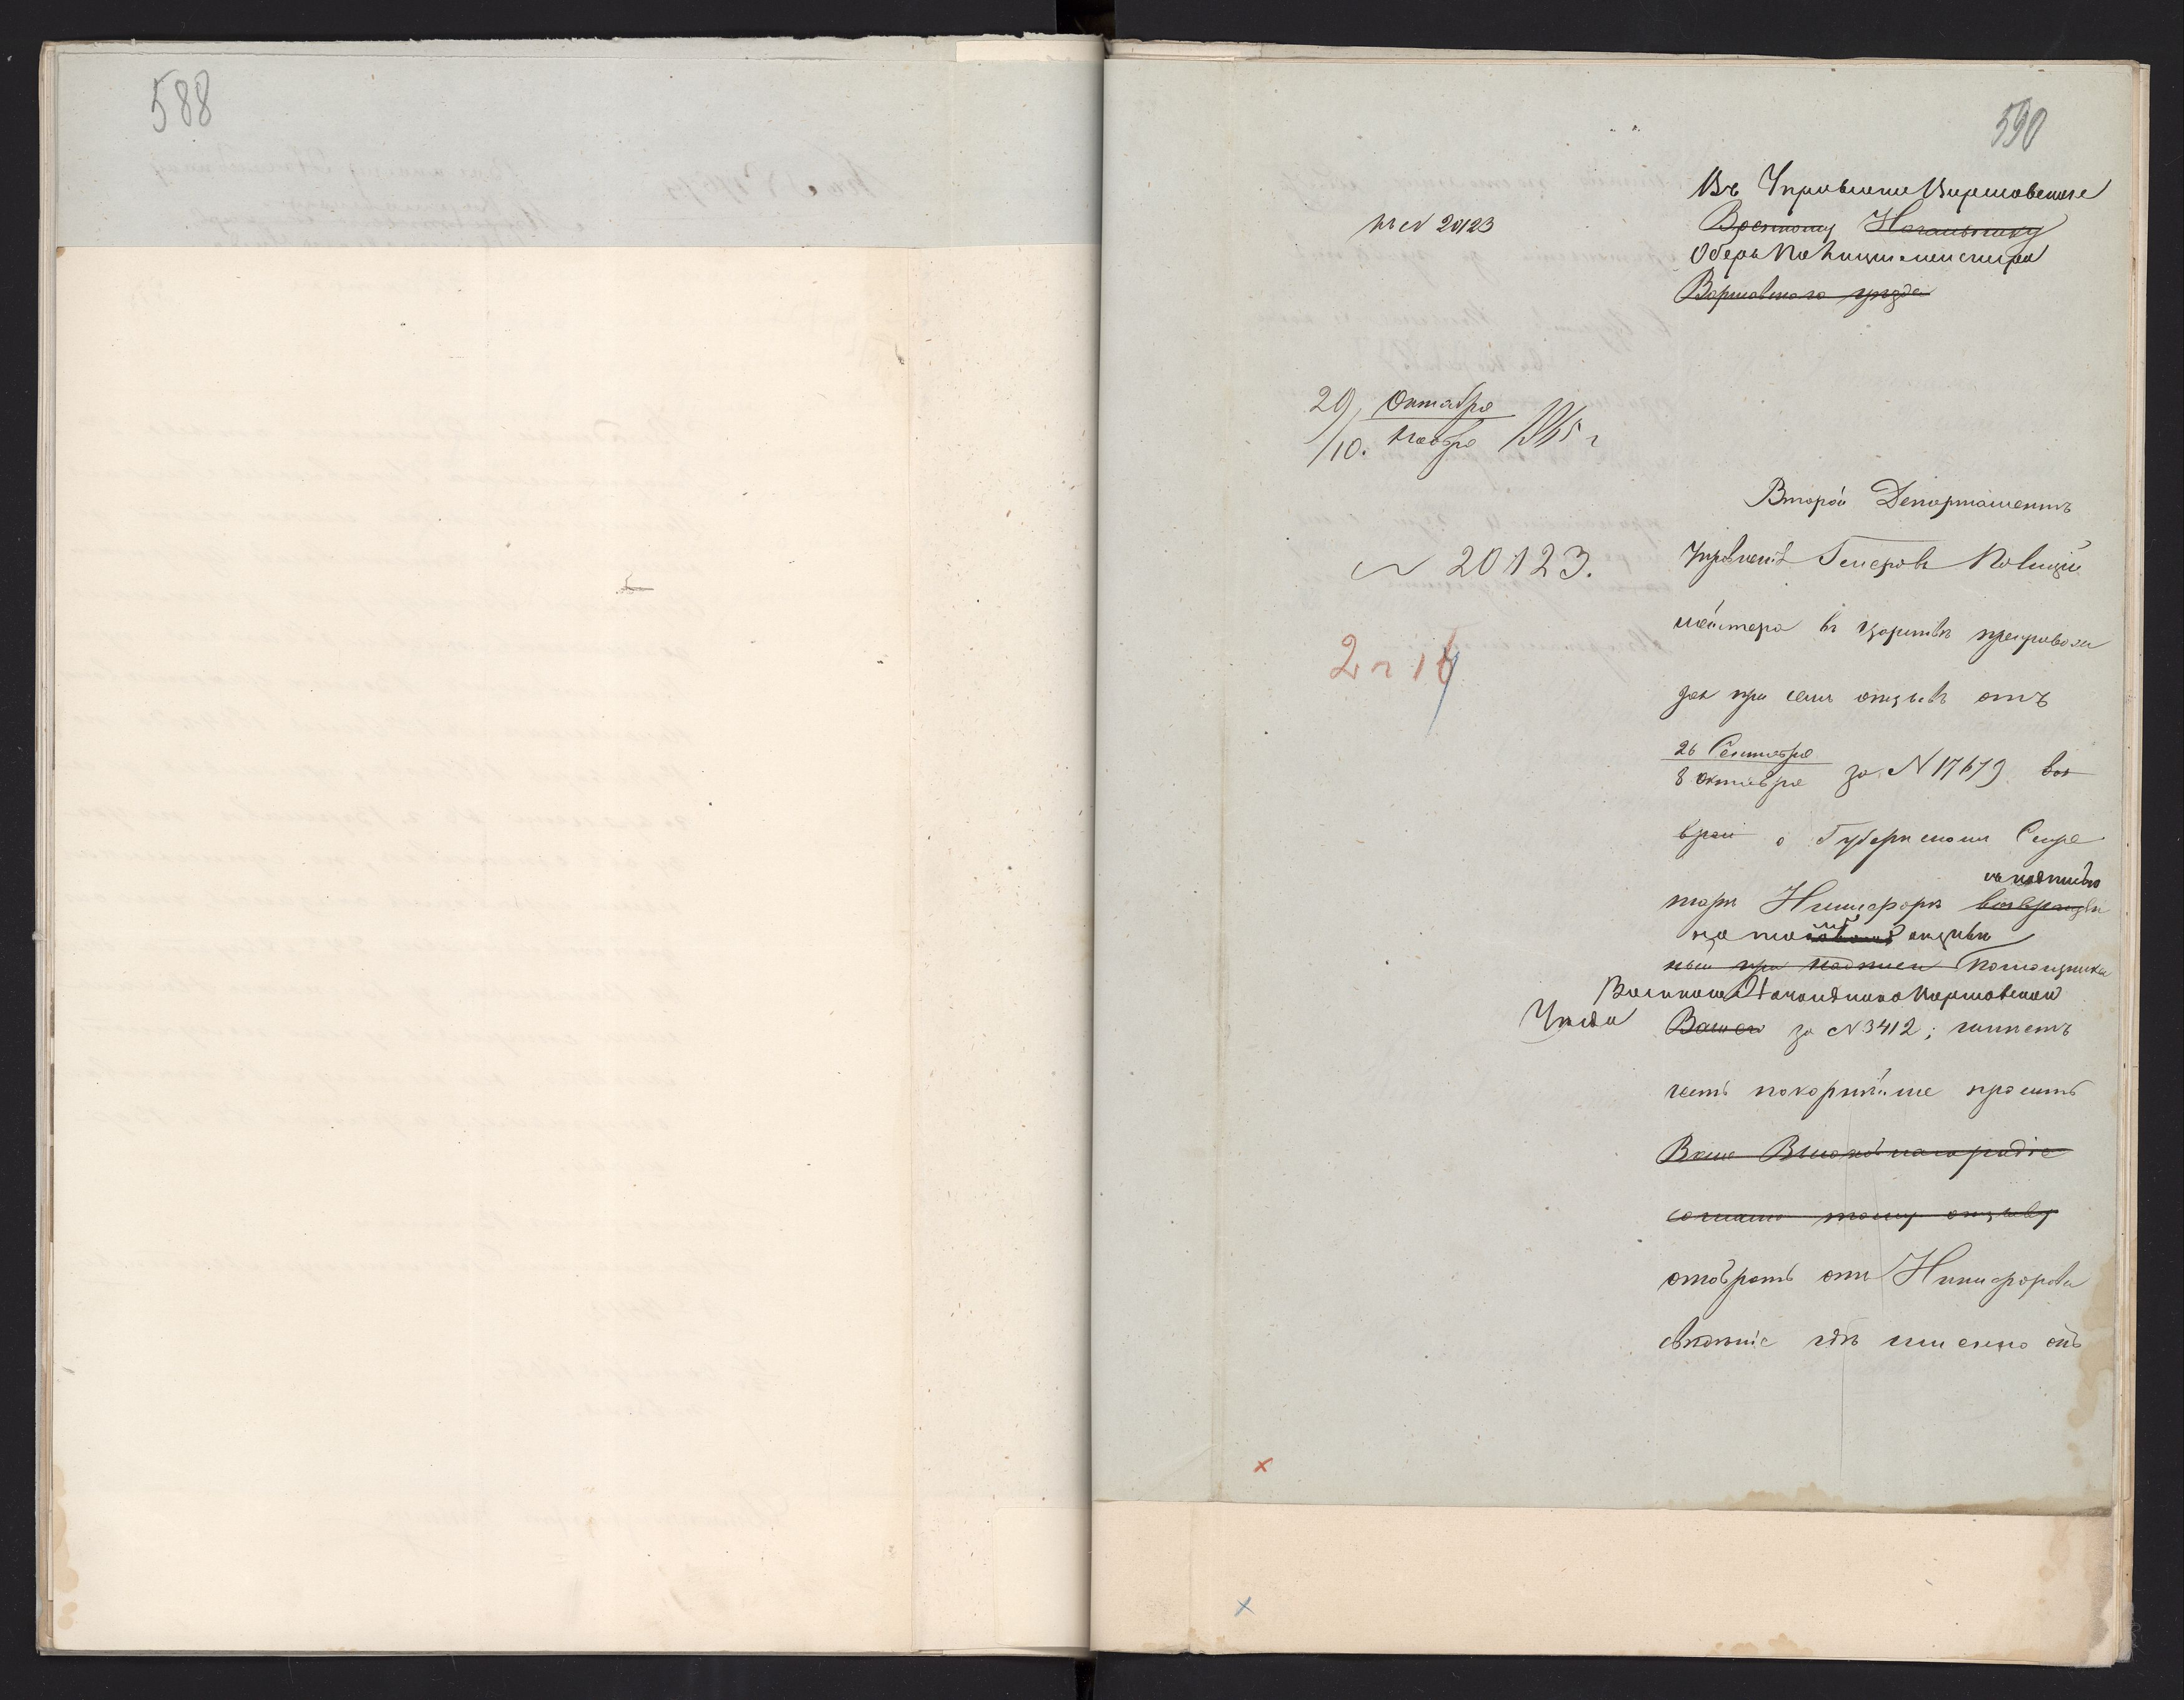 588
590
къ N 20123
Въ Управление Варшавскаго
Военному Начальнику
Оберъ Полицмейстера
Варшавскаго уезда
29 Октября
10. Ноября 1865 г
Второй Департаментъ
N 20123.
Управленія Генералъ Полиціи
мейстера въ Царствѣ препровож
дая при семъ отзывъ отъ
26 Сентября
8 Октября за N 17679 воз
врат о Губернскомъ Секре
тарѣ Никифоровѣ возвращен
съ надписью
на томъ отзывѣ
ный при надписи Помощника
Военнаго Начальника Варшавскаго
Уѣзда Вашего за N 3412; имѣетъ
честь покорнѣйше просить
Ваше Высокоблагородіе
согласно тому отзыву
отобрать отъ Никифорова
свѣдѣніе гдѣ именно онъ